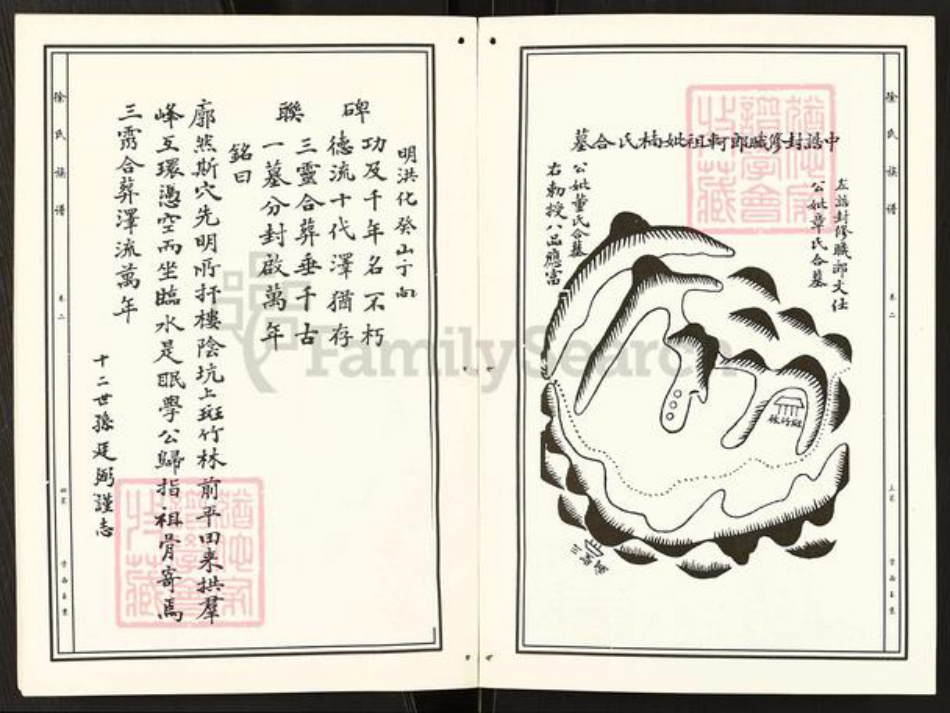 中誥封修職郎軒祖妣楠氏合墓
左誥封修職郎文仕
公妣章氏合墓
公妣董氏合墓
右勅授八品應富
斑竹林
徐氏族譜
卷二
明洪化癸山丁向
碑
功及千年名不朽
德流十代澤猶存
聯
三靈合葬垂千古
一墓分封啟萬年
銘曰
廓然斯穴先明所扦樓陰坑上斑竹林前平田來拱羣
峰互環憑空而坐臨水是眠學公歸指祖骨寄焉
三霛合葬澤流萬年
十二世孫廷弼謹志
徐氏族譜
卷二
FamilySearch